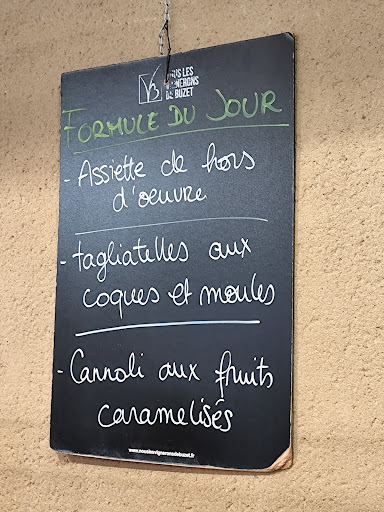 NOUS LES
VIGNERONS
DE BUZET
FORMULE DU JOUR
- Assiette de hors
d'oeuvre
- tagliatelles aux
coques et moules
- Cannoli aux fruits
caramelisés
www.nouslesvigneronsdebuzet.fr